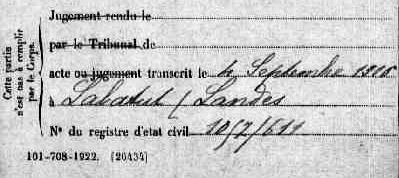 Cette partie
n'est pas à remplir
par le Corps.
Jugement rendu le
par le Tribunal de
acte ou jugement transcrit le 4 Septembre 1916
à Labatut (Landes
N° du registre d'état civil 10/7/611
101-708-1922. [26434]